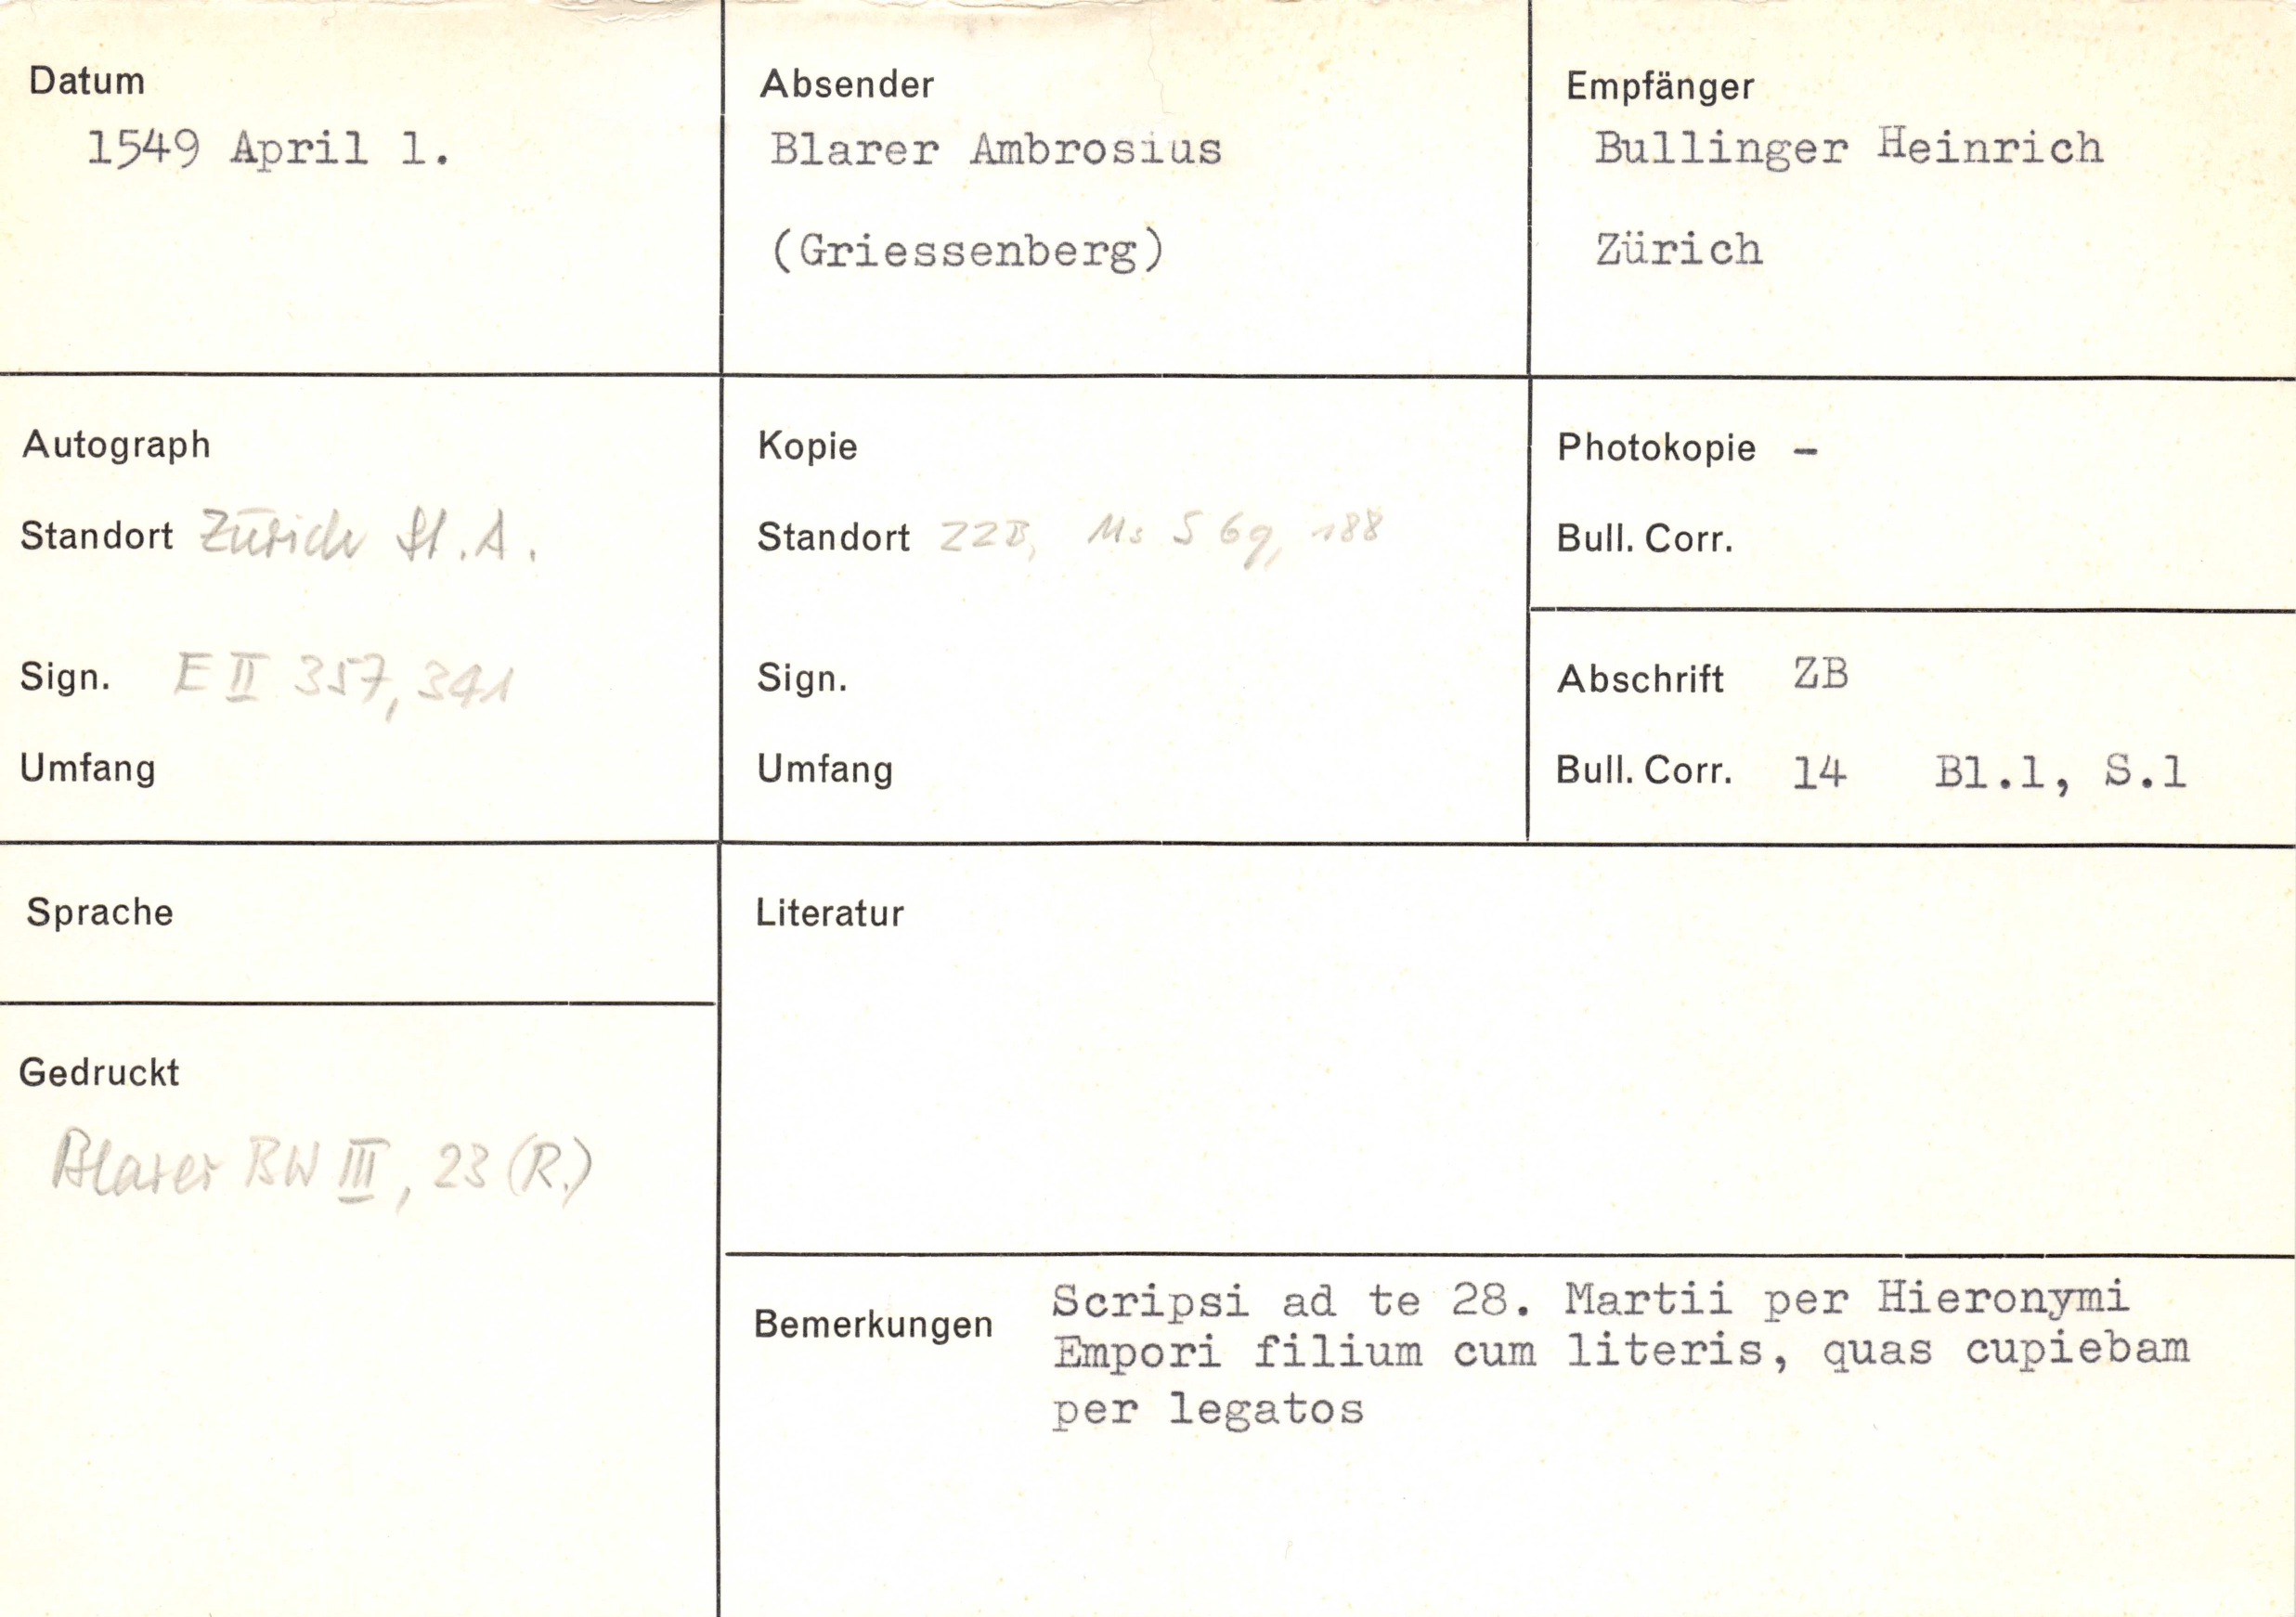 Datum
1549 April 1.
Absender
Blarer Ambrosius
(Griessenberg)
Empfänger
Bullinger Heinrich
Zürich
Autograph
Standort Zürich St.A.
Sign. E II 357, 341
Umfang
Kopie
Standort ZZB, Ms S 69, 188
Sign.
Umfang
Photokopie -
Bull. Corr.
Abschrift ZB
Bull. Corr. 14 Bl.1, S.1
Sprache
Gedruckt
Blarer BW III, 23 (R.)
Literatur
Bemerkungen
Scripsi ad te 28. Martii per Hieronymi
Empori filium cum literis, quas cupiebam
per legatos